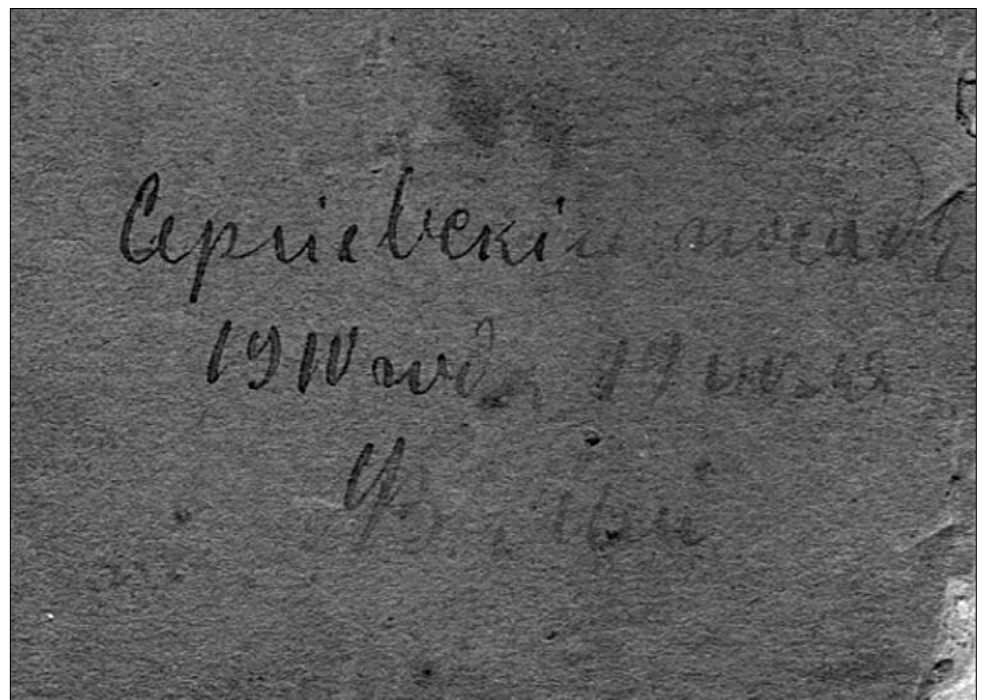 Сергіевскій посадъ
1910 года 19 июля